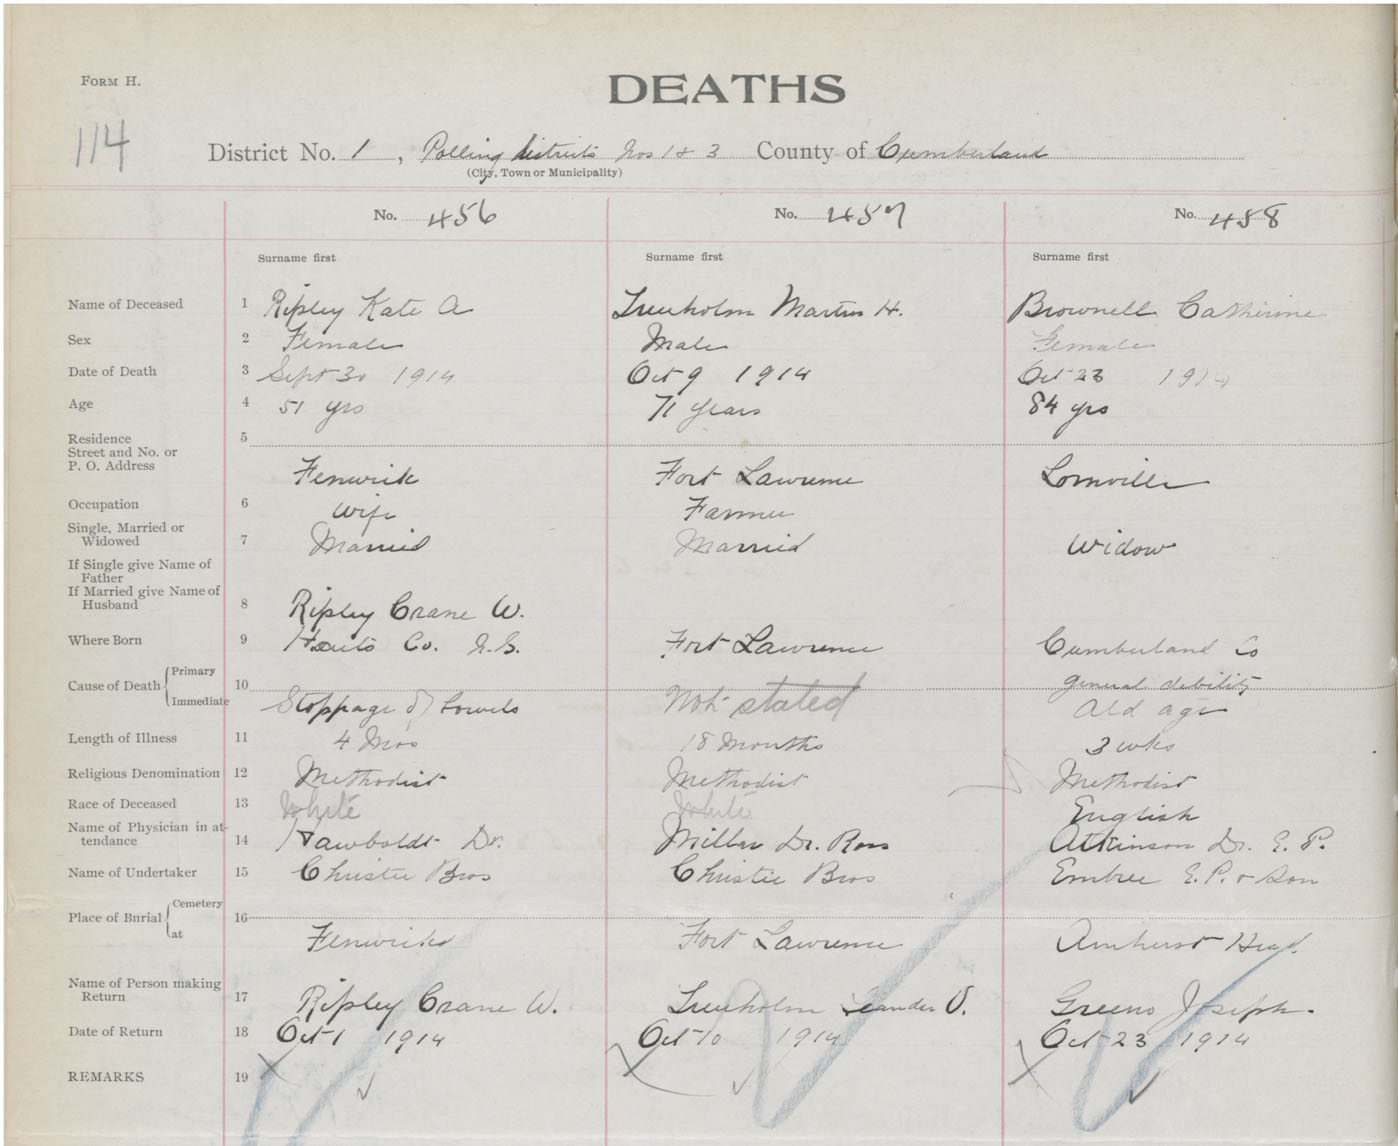 FORM H.
DEATHS
114
District No. 1, Polling districts Nos 1 & 3 County of Cumberland
(City, Town or Municipality)
No. 456 No. 457 No. 458
Surname first Surname first Surname first
Name of Deceased 1 Ripley Kate A Trenholm Martin H. Brownell Catherine
Sex 2 Female Male Female
Date of Death 3 Sept 30 1914 Oct 9 1914 Oct 23 1914
Age 4 51 yrs 71 years 84 yrs
Residence 5
Street and No. or
P. O. Address
Fenwick Fort Lawrence Lornville
Occupation 6 Wife Farmer
Single, Married or
Widowed 7 Married Married Widow
If Single give Name of
Father
If Married give Name of
Husband 8 Ripley Crane W.
Where Born 9 Hants Co. N.S. Fort Lawrence Cumberland Co
Cause of Death Primary 10 general debility
Immediate Stoppage of bowels Not stated Old age
Length of Illness 11 4 Mos 18 Months 3 wks
Religious Denomination 12 Methodist Methodist Methodist
Race of Deceased 13 White White English
Name of Physician in at-
tendance 14 Hawboldt Dr. Millar Dr. Ross Atkinson Dr. E. P.
Name of Undertaker 15 Christie Bros Christie Bros Embree E.P. & Son
Place of Burial Cemetery 16
at Fenwick Fort Lawrence Amherst Head
Name of Person making
Return 17 Ripley Crane W. Trenholm Leander V. Greeno Joseph.
Date of Return 18 Oct 1 1914 Oct 10 1914 Oct 23 1914
REMARKS 19